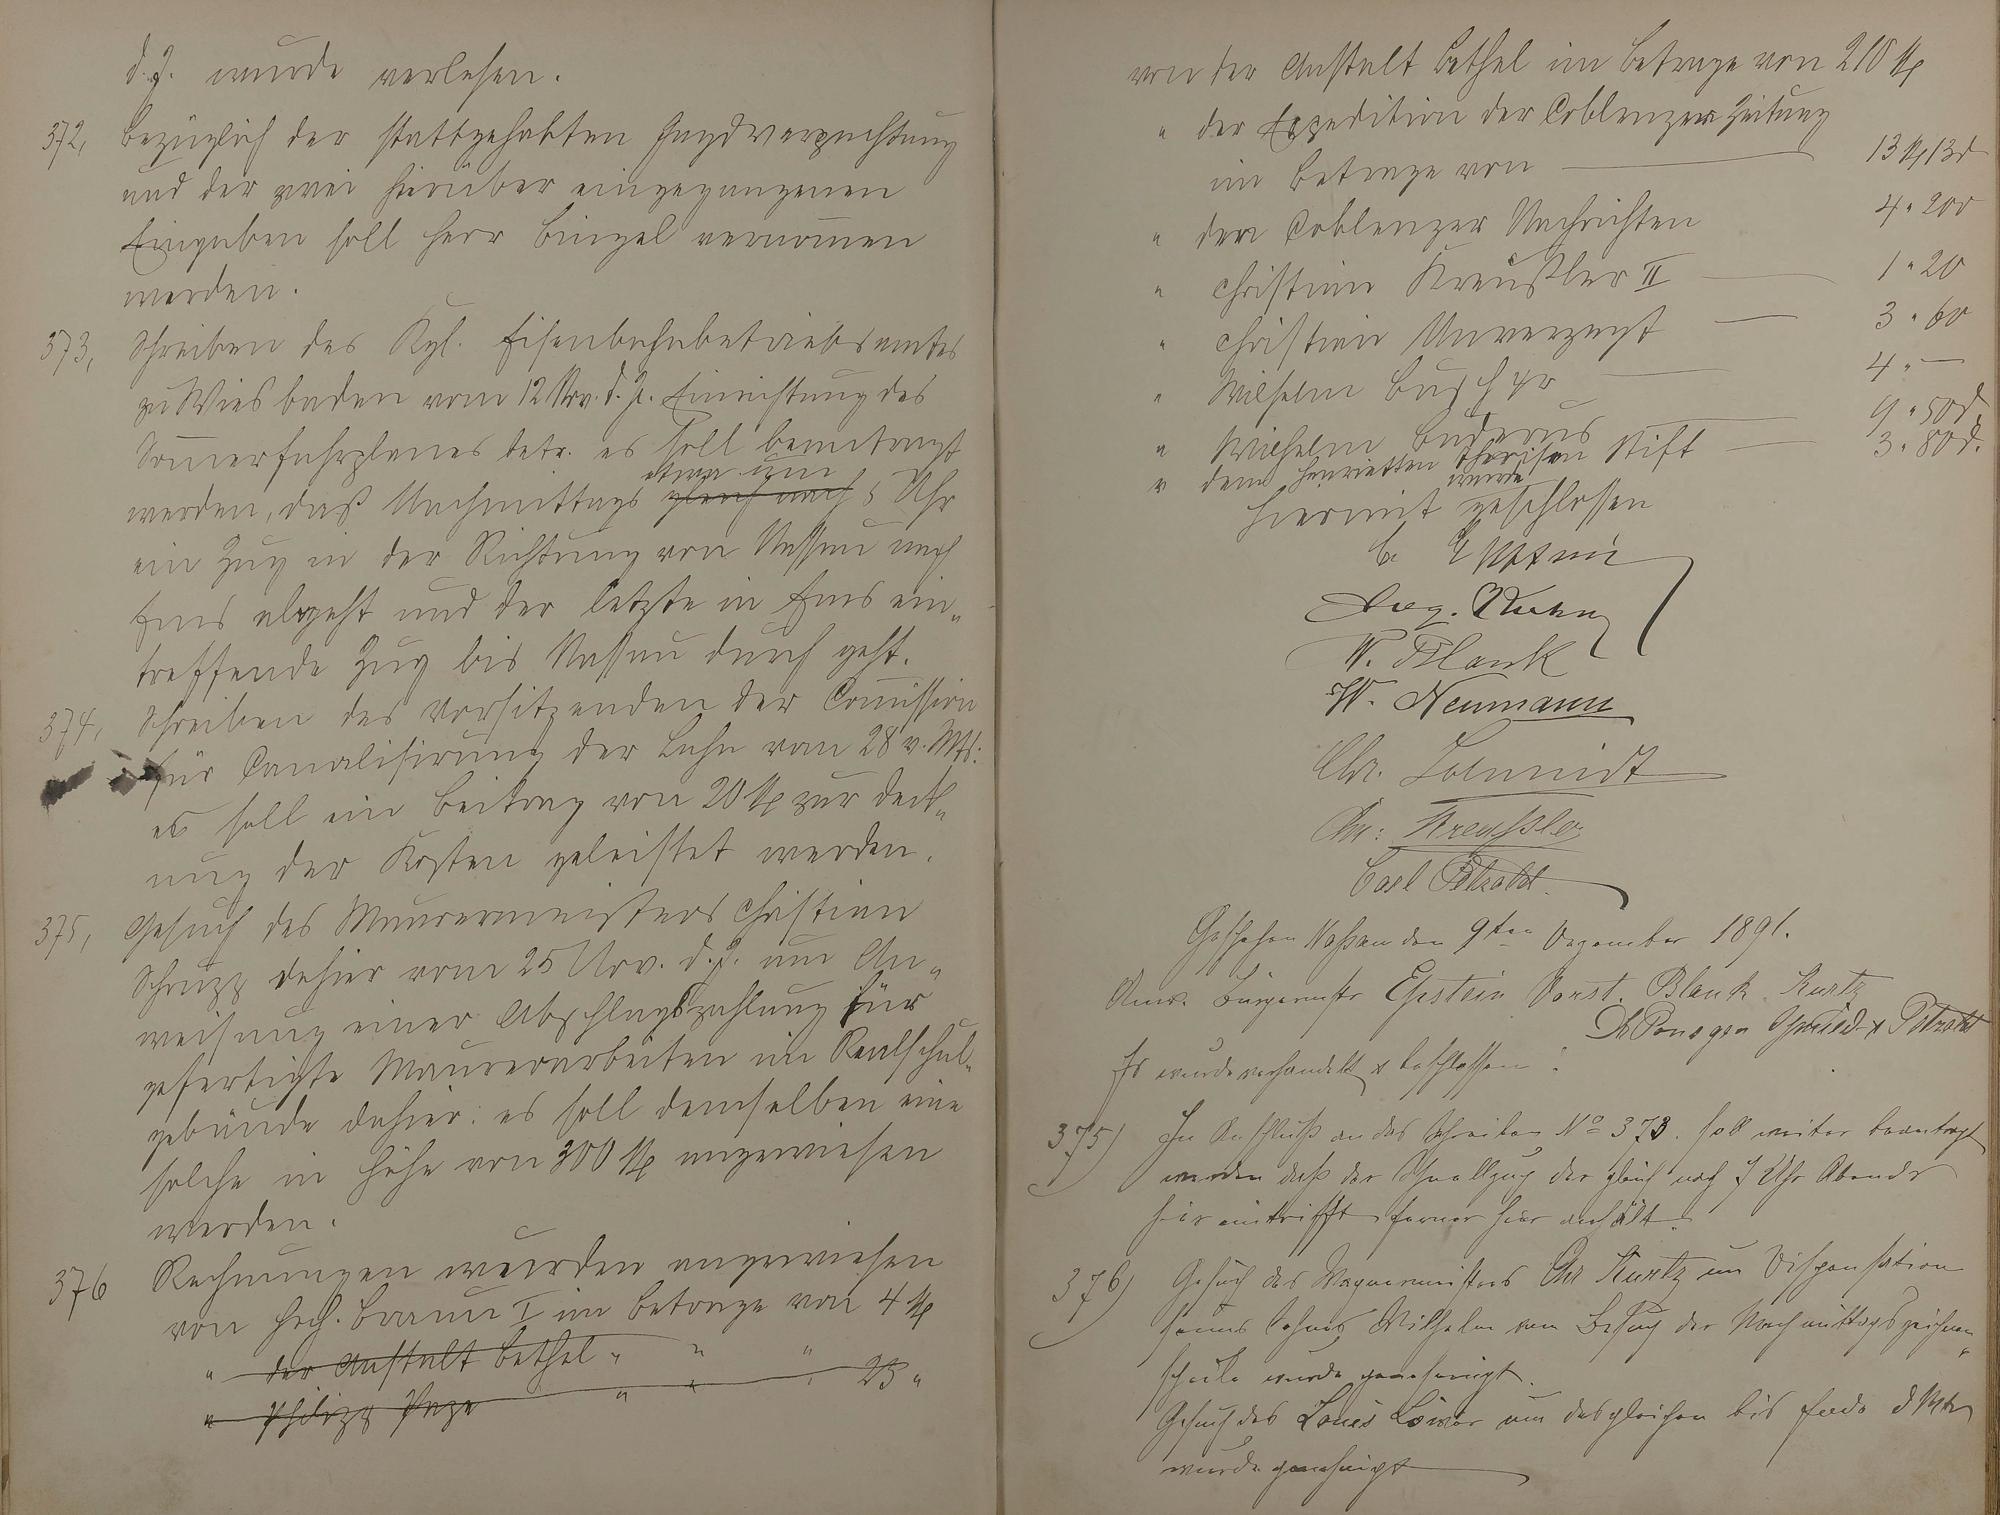 d. J. wurde verlesen.
372, Bezüglich der stattgehabten Jagdverpachtung
und der zwei hierüber eingegangenen
Eingaben soll Herr Bingel vernommen
werden.
373, Schreiben des Kgl. Eisenbahnbetriebsamtes
zu Wiesbaden vom 12 Nov. d. J. Einrichtung des
Sommerfahrplanes betr. es soll beantragt
etwa um
werden, daß Nachmittags gleich nach 5 Uhr
ein Zug in der Richtung von Nassau nach
Ems abgeht und der letzte in Ems ein„
treffende Zug bis Nassau durch geht.
374, Schreiben des Vorsitzenden der Commission
für Canalisirung der Lahn vom 28 v. Mts:
es soll ein Beitrag von 20 M zur Deck„
ung der Kosten geleistet werden.
375, Gesuch des Maurermeisters Christian
Schrupp dahier vom 25 Nov. d. J. um An„
weisung einer Abschlagszahlung für
gefertigte Maurerarbeiten im Realschul„
gebäude dahier: es soll demselben eine
solche in Höhe von 300 M angewiesen
werden.
376 Rechnungen wurden angewiesen
von Hch. Braun I im Betrage von 4 M
" der Anstalt Bethel " " "
" Philipp " " " 23 "
von der Anstalt Bethel im Betrage von 210 M
" der Expedition der Coblenzer Zeitung
im Betrage von 13 M 13 d
" den Coblenzer Nachrichten 4 " 200
" Christian Kreußler II 1 " 20
" Christian Unverzagt 3 " 60
" Wilhelm 4 " —
" Wilhelm Buderus 9 " 50 d
" dem Henrietten Theresen Stift 3 " 80 d.
wurde
Hiermit geschlossen
E. Epstein
Aug. Kuhn
W. Blank
W. Neumann
Chr. Schmidt
Chr: Kreußler
Carl Pötzold
Geschehen Naßau den 9ten Dezember 1891.
Anw. Bürgermstr Epstein Vorst. Blank Kurtz
Schmidt & Pötzold
Es wurde verhandelt & beschlossen:
375) Im Anschluß an das Schreiben No 373. soll weiter beantragt
werden daß der Schnellzug der gleich nach 7 Uhr Abends
hier eintrifft ferner hier anhält.
376) Gesuch des Wagnermeisters Chr Kurtz um Dispensation
seines Sohnes Wilhelm vom Besuch der Nachmittagszeichen„
schule wurde genehmigt.
Gesuch des Louis Löwer um desgleichen bis Ende d Mts
wurde genehmigt